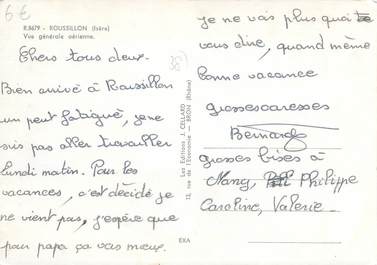 6€
R.8679 - ROUSSILLON (Isère)
Vue générale aérienne.
Chers tous deux.
Bien arrivé à Roussillon
un peut fatigué, je ne
suis pas aller travailler
lundi matin. Pour les
vacances, c'est décidé je
ne vient pas, j'espère que
pour papa ça vas mieux.
38
Les Editions J. CELLARD
13, rue de l'Economie - BRON (Rhône)
EXA
je ne vais plus quoi
vous dire, quand même
bonne vacance
grosses caresses
Bernard
grosses bises à
Nany, Philippe
Caroline, Valérie